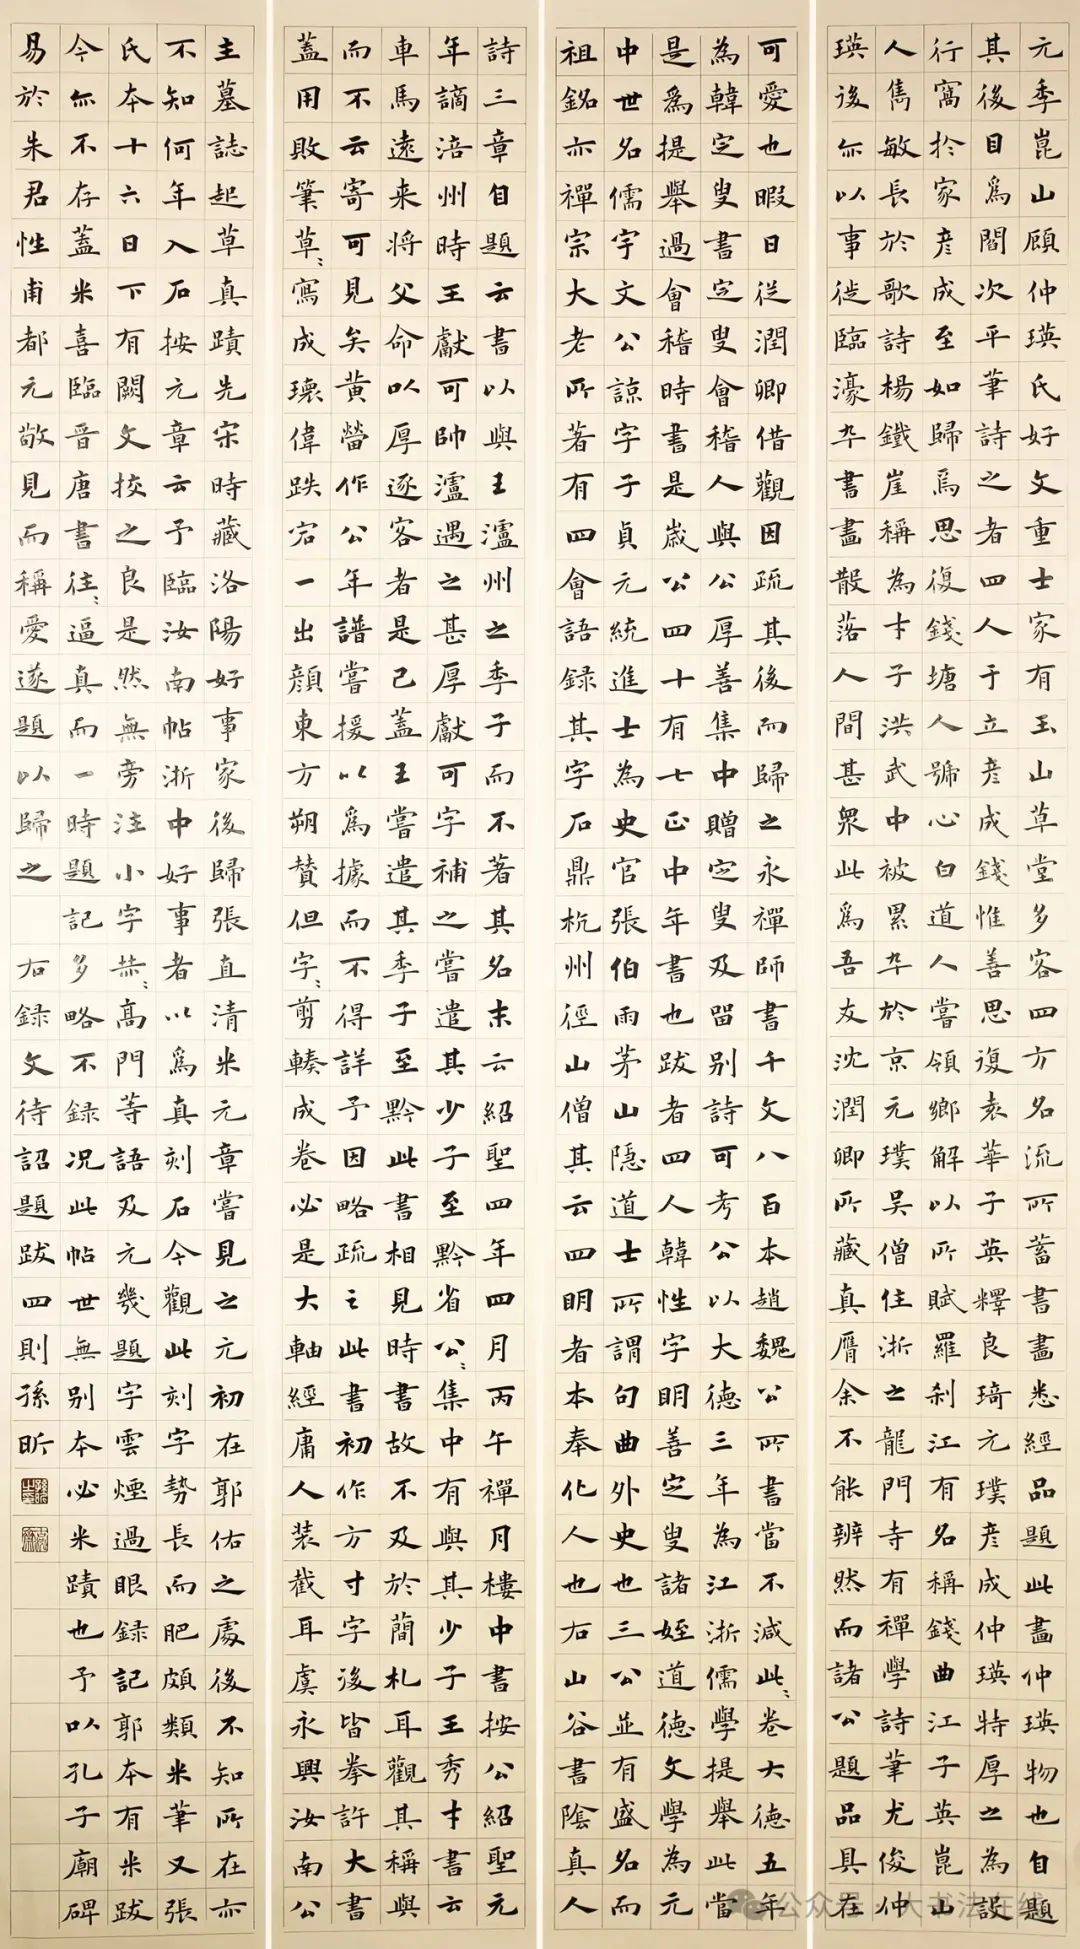 元季崑山顧仲瑛氏好文重士家有玉山草堂多客四方名流所蓄書畫悉經品題此畫仲瑛物也自題
其後目為閻次平筆詩之者四人于立彥成錢惟善思復袁華子英釋良琦元璞彥成仲瑛特厚之為設
行窩於家彥成至如歸焉思復錢塘人號心白道人嘗領鄉解以所賦羅剎江有名稱錢曲江子英崑山
人雋敏長於歌詩楊鐵崖稱為才子洪武中被累卒於京元璞吳僧住浙之龍門寺有禪學詩筆尤俊仲
瑛後亦以事徙臨濠卒書畫散落人間甚衆此為吾友沈潤卿所藏真贋余不能辨然而諸公題品具在
可愛也暇日從潤卿借觀因疏其後而歸之永禪師書千文八百本趙魏公所書當不減此〻卷大德五年
為韓定叟書定叟會稽人與公厚善集中贈定叟及留别詩可考公以大德三年為江浙儒學提舉此當
是為提舉過會稽時書是歲公四十有七正中年書也跋者四人韓性字明善定叟諸姪道德文學為元
中世名儒宇文公諒字子貞元統進士為史官張伯雨茅山隱道士所謂句曲外史也三公並有盛名而
祖銘亦禪宗大老所著有四會語録其字石鼎杭州徑山僧其云四明者本奉化人也右山谷書陰真人
詩三章自題云書以與王瀘州之季子而不著其名末云紹聖四年四月丙午禪月樓中書按公紹聖元
年謫涪州時王獻可帥瀘遇之甚厚獻可字補之嘗遣其少子至黔省公〻集中有與其少子王秀才書云
車馬遠来將父命以厚逐客者是已蓋王嘗遣其季子至黔此書相見時書故不及於簡札耳觀其稱與
而不云寄可見矣黄㽦作公年譜嘗援以為據而不得詳予因略疏之此書初作方寸字後皆拳許大書
蓋用敗筆草〻寫成瓌偉跌宕一出顔東方朔贊但字〻剪輳成卷必是大軸經庸人装截耳虞永興汝南公
主墓誌起草真蹟先宋時藏洛陽好事家後歸張直清米元章嘗見之元初在郭佑之處後不知所在亦
不知何年入石按元章云予臨汝南帖浙中好事者以為真刻石今觀此刻字勢長而肥頗類米筆又張
氏本十六日下有闕文挍之良是然無旁注小字赫〻高門等語及元㡬題字雲煙過眼録記郭本有米跋
今亦不存蓋米喜臨晉唐書往〻逼真而一時題記多略不録况此帖世無别本必米蹟也予以孔子廟碑
易於朱君性甫都元敬見而稱愛遂題以歸之 右録文待詔題跋四則孫昕
公众号·大书法在线